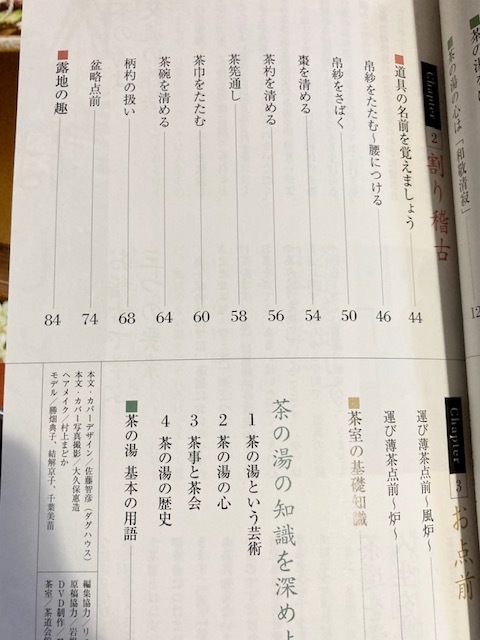 茶の湯の心は「和敬清寂」
12
Chapter 2 割り稽古
■道具の名前を覚えましょう 44
帛紗をたたむ～腰につける 46
帛紗をさばく 50
棗を清める 54
茶杓を清める 56
茶筅通し 58
茶巾をたたむ 60
茶碗を清める 64
柄杓の扱い 68
盆略点前 74
■露地の趣 84
Chapter 3 お点前
運び薄茶点前～風炉～
運び薄茶点前～炉～
■茶室の基礎知識
茶の湯の知識を深め
1 茶の湯という芸術
2 茶の湯の心
3 茶事と茶会
4 茶の湯の歴史
■茶の湯 基本の用語
本文・カバーデザイン／佐藤智彦（ダグハウス）
本文・カバー写真撮影／大久保惠造
ヘアメイク／村上まどか
モデル／勝畑典子、結解京子、千葉美苗
編集協力／リ
原稿協力／岩
DVD制作／
茶室／茶道会